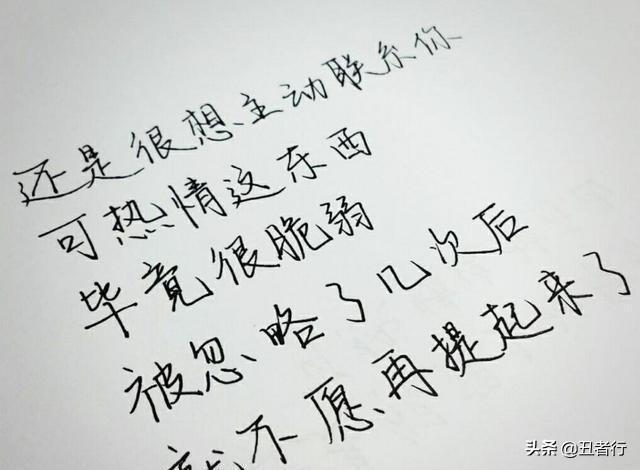 还是很想主动联系你
可热情这东西
毕竟很脆弱
被忽略了几次后
就不愿再提起来了
头条 @丑者行